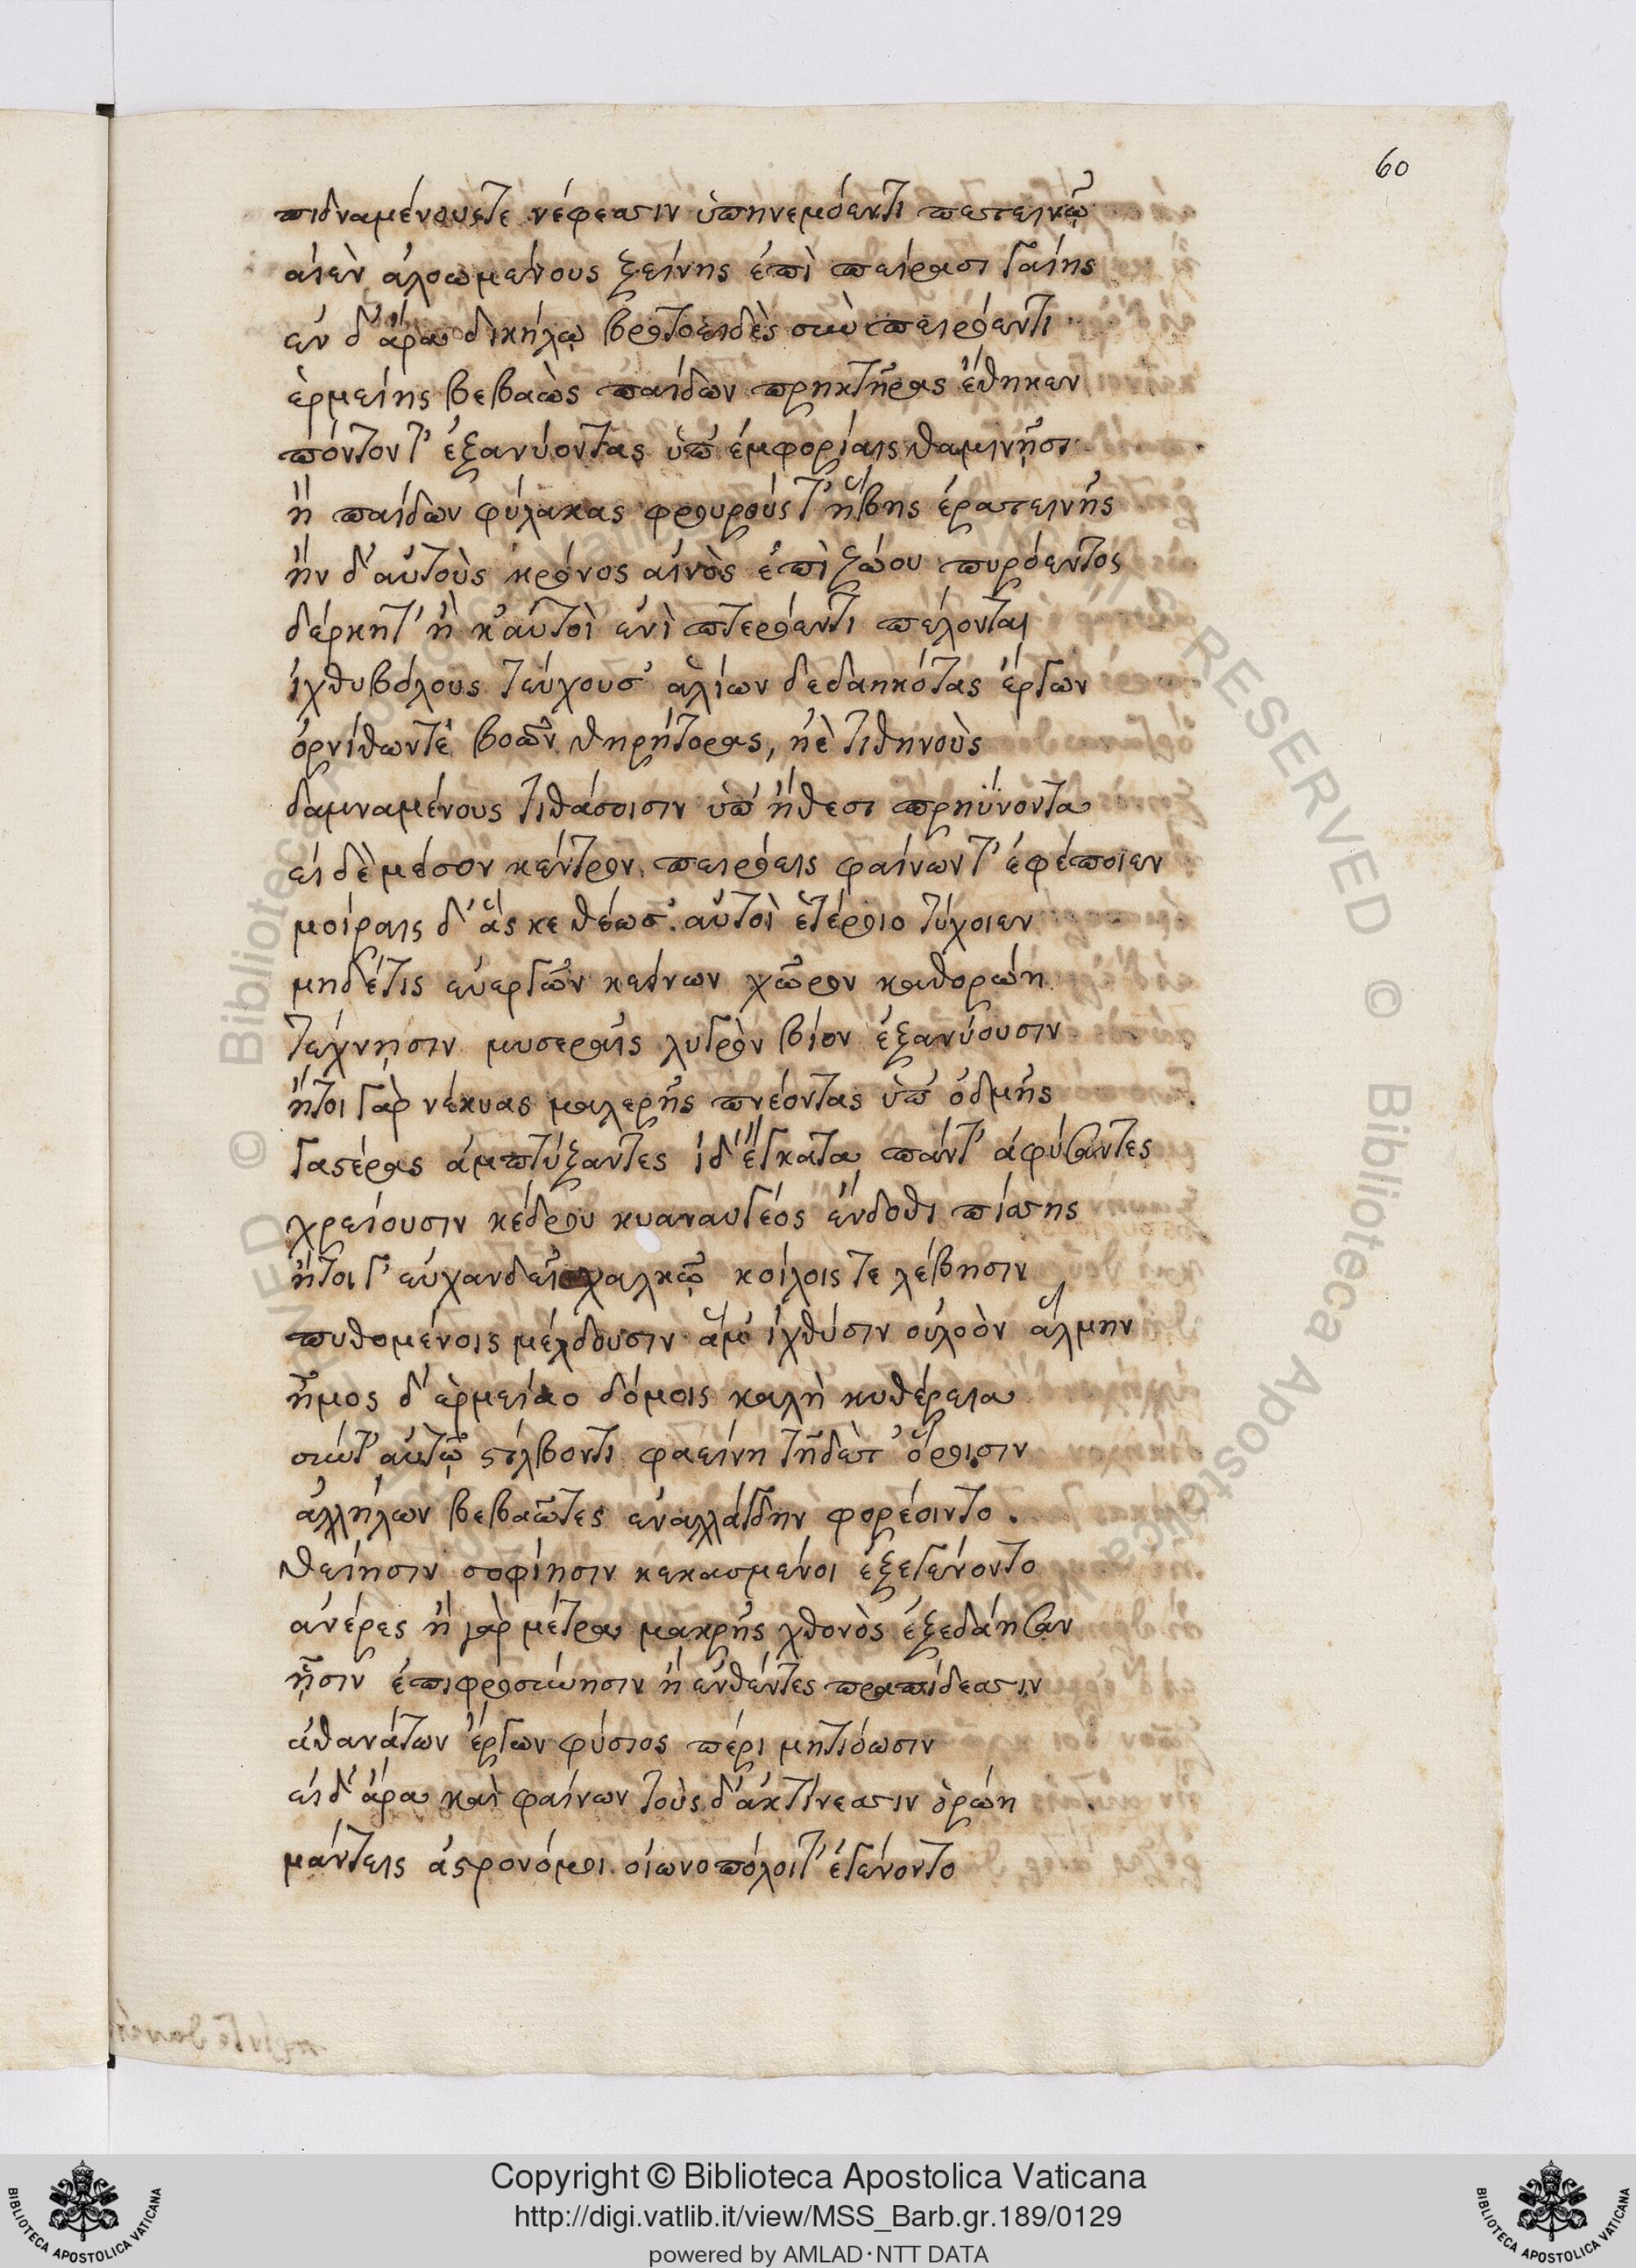 60
πιδναμένουςτε νέφεασιν ὑπηνεμόεντι πετεεινῷ
αἰὲν ἀλοωμένους ξείνης ἐπὶ πείρασι γαίης
ἐν δ' ἄρα δικήλῳ βροτοειδὲς σὺν πειρόεντι
ἑρμείης βεβαὼς παίδων πρηκτῆρας ἔθηκεν
πόντοντ' ἐξανύοντας ὑπ' ἐμφορίαις θαμινῇσι
ἢ παίδων φύλακας φρουρούς τ' ἥβης ἐρατεινῆς
ἢν δ' αὐτοὺς κρόνος αἰνὸς ἐπὶ ζώου πυρόεντος
δέρκητ' ἢ κ' αὐτοὶ ἐνὶ πτερόεντι πέλονται
ἰχθυβόλους τεύχουσ' ἁλίων δεδαηκότας ἔργων
ὀρνίθωντε βοῶν θηρήτορας, ἠὲ τιθηνοὺς
δαμναμένους τιθάσοισιν ὑπ' ἤθεσι πρηΰνοντα
εἰ δὲ μέσον κέντρον πειρόεις φαίνων τ' ἐφέποιεν
μοίραις δ' ἅς κε θέωσ' αὐτοὶ ἑτέροιο τύχοιεν
μηδέτις εὐεργῶν κείνων χῶρον καθορώη
τέχνῃσιν μυσεραῖς λυγρὸν βίον ἐξανύουσιν
ἤτοι γὰρ νέκυας μαλερῆς πνέοντας ὑπ' ὀδμῆς
γαστέρας ἀμπτύξαντες ἰδ' ἔγκατα πάντ' ἀφύσαντες
χρείουσιν κέδρου κυαναυγέος ἔνδοθι πίσσης
ἤτοι γ' εὐχανδεῖ χαλκῷ κοίλοις τε λέβησιν
πυθομένοις μέλδουσιν ἅμ' ἰχθύσιν οὐλοὸν ἅλμην
ἦμος δ' ἑρμείαο δόμοις καλὴ κυθέρεια
σύντ' αὐτῷ στίλβοντι φαείνη τῇδέτ' ὅροισιν
ἀλλήλων βεβαῶτες ἐναλλάγδην φορέοιντο.
θείησιν σοφίησιν κεκασμένοι ἐξεγένοντο
ἀνέρες ἢ γὰρ μέτρα μακρῆς χθονὸς ἐξεδάησαν
ᾗσιν ἐπιφροσύνησιν ἢ ἐνθέντες πραπίδεασιν
ἀθανάτων ἔργων φύσιος πέρι μητιόωσιν
εἰ δ' ἄρα καὶ φαίνων τοὺς δ' ἀκτίνεασιν ὁρώη
μάντεις ἀστρονόμοι οἰωνοπόλοιτ' ἐγένοντο
Copyright © Biblioteca Apostolica Vaticana
http://digi.vatlib.it/view/MSS_Barb.gr.189/0129
powered by AMLAD·NTT DATA
BIBLIOTECA APOSTOLICA VATICANA
BIBLIOTECA APOSTOLICA VATICANA